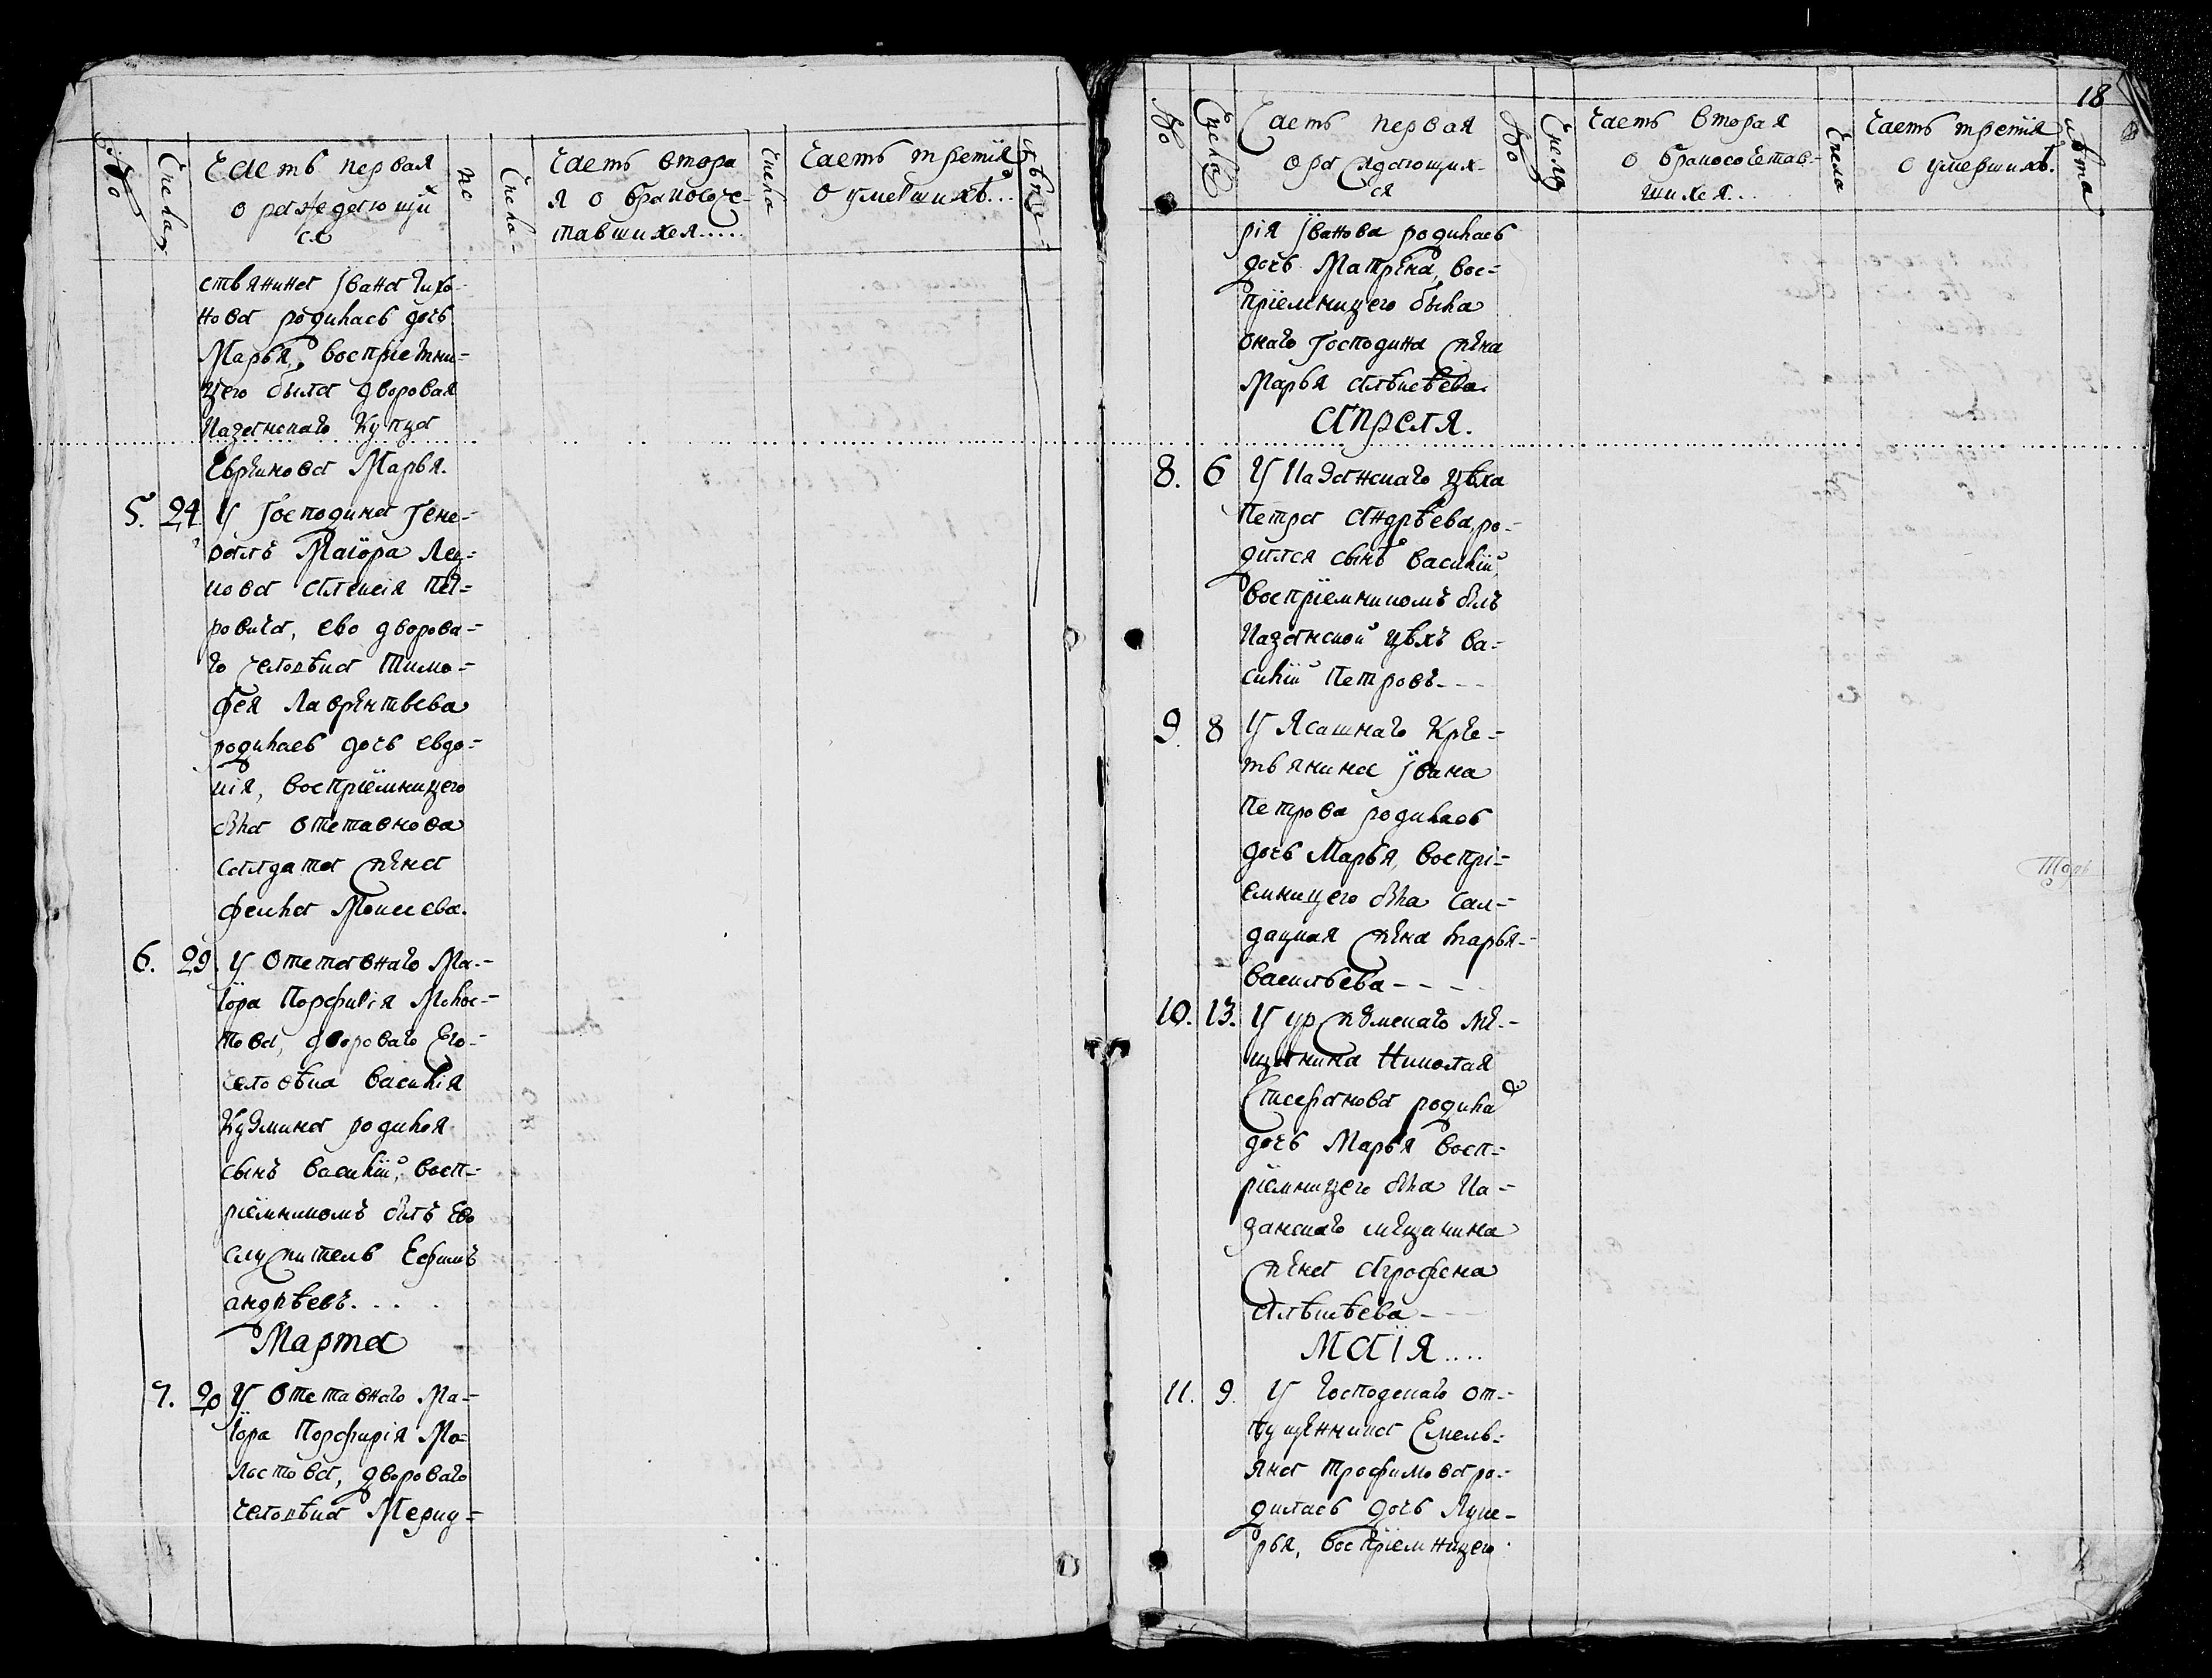 №
Числа
Часть первая
о раждающи
ся
№
Числа
Часть втора
я о бракосоче-
тавшихся.....
Числа
Часть третїя
о умершихъ...
лѣта
ствянина Ївана Тихо-
нова родилась дочь
Марья, воспрїемни-
цею была дворовая
Казанскаго Купца
Еврѣинова Марья.
5. 24. У Господина Гене-
ралъ Маїора Лец-
кова Алексїя Пет-
ровича, ево дворова-
го человѣка Тимо-
фея Лаврентьева
родилась дочь евдо-
кїя, воспрїемницею
бла отставнова
салдата жена
фекла Моисеева.
6. 29. У Отставнаго Ма-
їора Порфирїя Молос-
това, двороваго Его
человѣка василїя
Кузмина родился
сынъ василїй, восп-
рїемникомъ былъ Ево
служитель Ефимъ
андрѣевъ...
Марта
7. 20 У Отставнаго Ма-
їора Порфирїя Мо-
лостова, двороваго
человѣка Мерку-
18
№
Числа
Часть первая
о раждающих-
ся
№
Числа
Часть вторая
о бракосочетав-
шихся...
Числа
Часть третїя
о умершихъ.
лѣта
рїя Їванова родилась
дочь Матрѣна, вос-
прїемницею была
онаго Господина жена
Марья Алѣксѣева.
Апреля.
8. 6 У Казанскаго цѣха
Петра Андрѣева, ро-
дился сынъ василїй,
воспрїемникомъ былъ
Казанской цѣхъ ва-
силїй Петровъ---
9. 8 У Ясашнаго Кре-
тьянина Ївана
Петрова родилась
дочь Марья, воспрї-
емницею бла Сал-
дацкая жена марья
васильева----
10. 13. У уржумскаго мѣ-
щанина Николая
Стефанова родила
дочь Марья восп-
рїемницею бла Ка-
занскаго мѣщанина
жена Аграфена
Алѣксѣева---
МАЇЯ....
11. 9. У Господскаго от-
пущенника Емель-
яна трофимова ро-
дилась дочь Луке-
рья, воспрїемницею